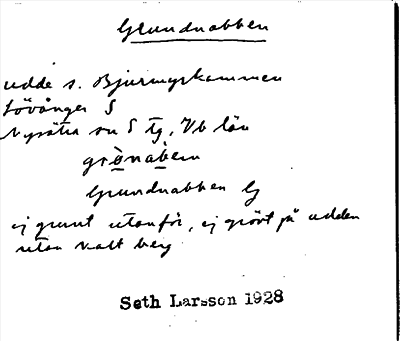 Grundnabben
udde s. Bjurmyrkammen
Lövånger S
Nysätra sn S tg, Vb län
grònabèn
Grundnabben G
ej grunt utanför, ej grönt på udden
utan kalt berg
Seth Larsson 1928